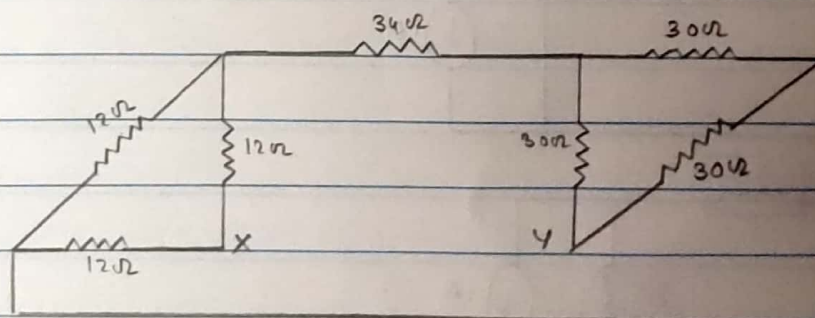 34Ω
30Ω
12Ω
12Ω
30Ω
30Ω
X
Y
12Ω